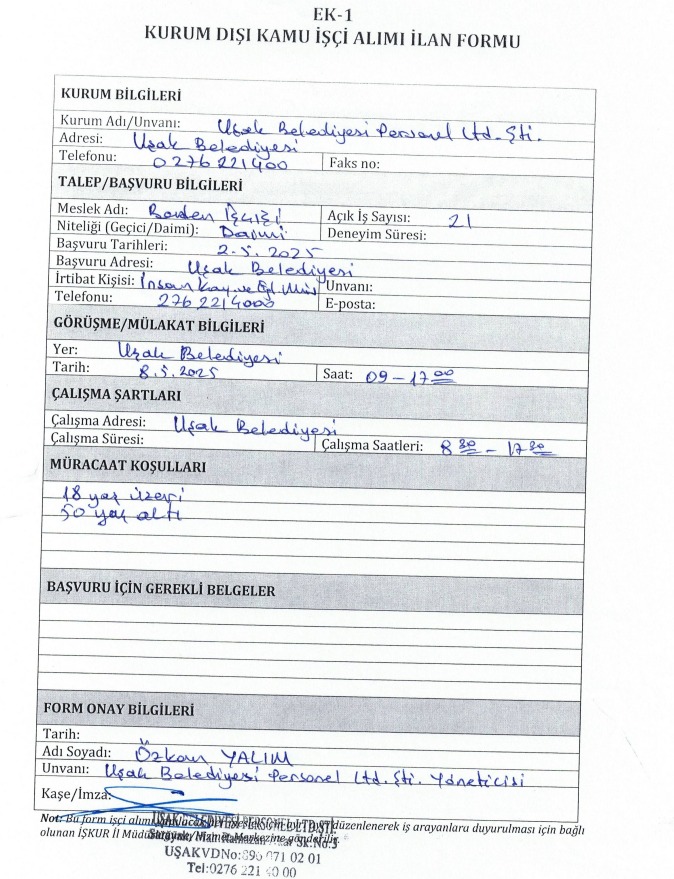 EK-1
KURUM DIŞI KAMU İŞÇİ ALIMI İLAN FORMU
KURUM BİLGİLERİ
Kurum Adı/Unvanı: Uşak Belediyesi Personel Ltd. Şti.
Adresi: Uşak Belediyesi
Telefonu: 0276 221400 Faks no:
TALEP/BAŞVURU BİLGİLERİ
Meslek Adı: Beden İşçisi Açık İş Sayısı: 21
Niteliği (Geçici/Daimi): Daimi Deneyim Süresi:
Başvuru Tarihleri: 2.5.2025
Başvuru Adresi: Uşak Belediyesi
İrtibat Kişisi: İnsan Kay. ve Eğt. Müd Unvanı:
Telefonu: 276 2214000 E-posta:
GÖRÜŞME/MÜLAKAT BİLGİLERİ
Yer: Uşak Belediyesi
Tarih: 8.5.2025 Saat: 09 - 17 00
ÇALIŞMA ŞARTLARI
Çalışma Adresi: Uşak Belediyesi
Çalışma Süresi: Çalışma Saatleri: 8 30 - 17 30
MÜRACAAT KOŞULLARI
18 yaş üzeri
50 yaş altı
BAŞVURU İÇİN GEREKLİ BELGELER
FORM ONAY BİLGİLERİ
Tarih:
Adı Soyadı: Özkan YALIM
Unvanı: Uşak Belediyesi Personel Ltd. Şti. Yöneticisi
Kaşe/İmza:
Not: Bu form işçi alımı düzenlenerek iş arayanlara duyurulması için bağlı
olunan İŞKUR İl Müdürlüğü/Hizmet Merkezine gönderilir.
UŞAK BELEDİYESİ PERSONEL LTD. ŞTİ.
Sk.No:5
UŞAKVDNo:896 071 02 01
Tel:0276 221 40 00